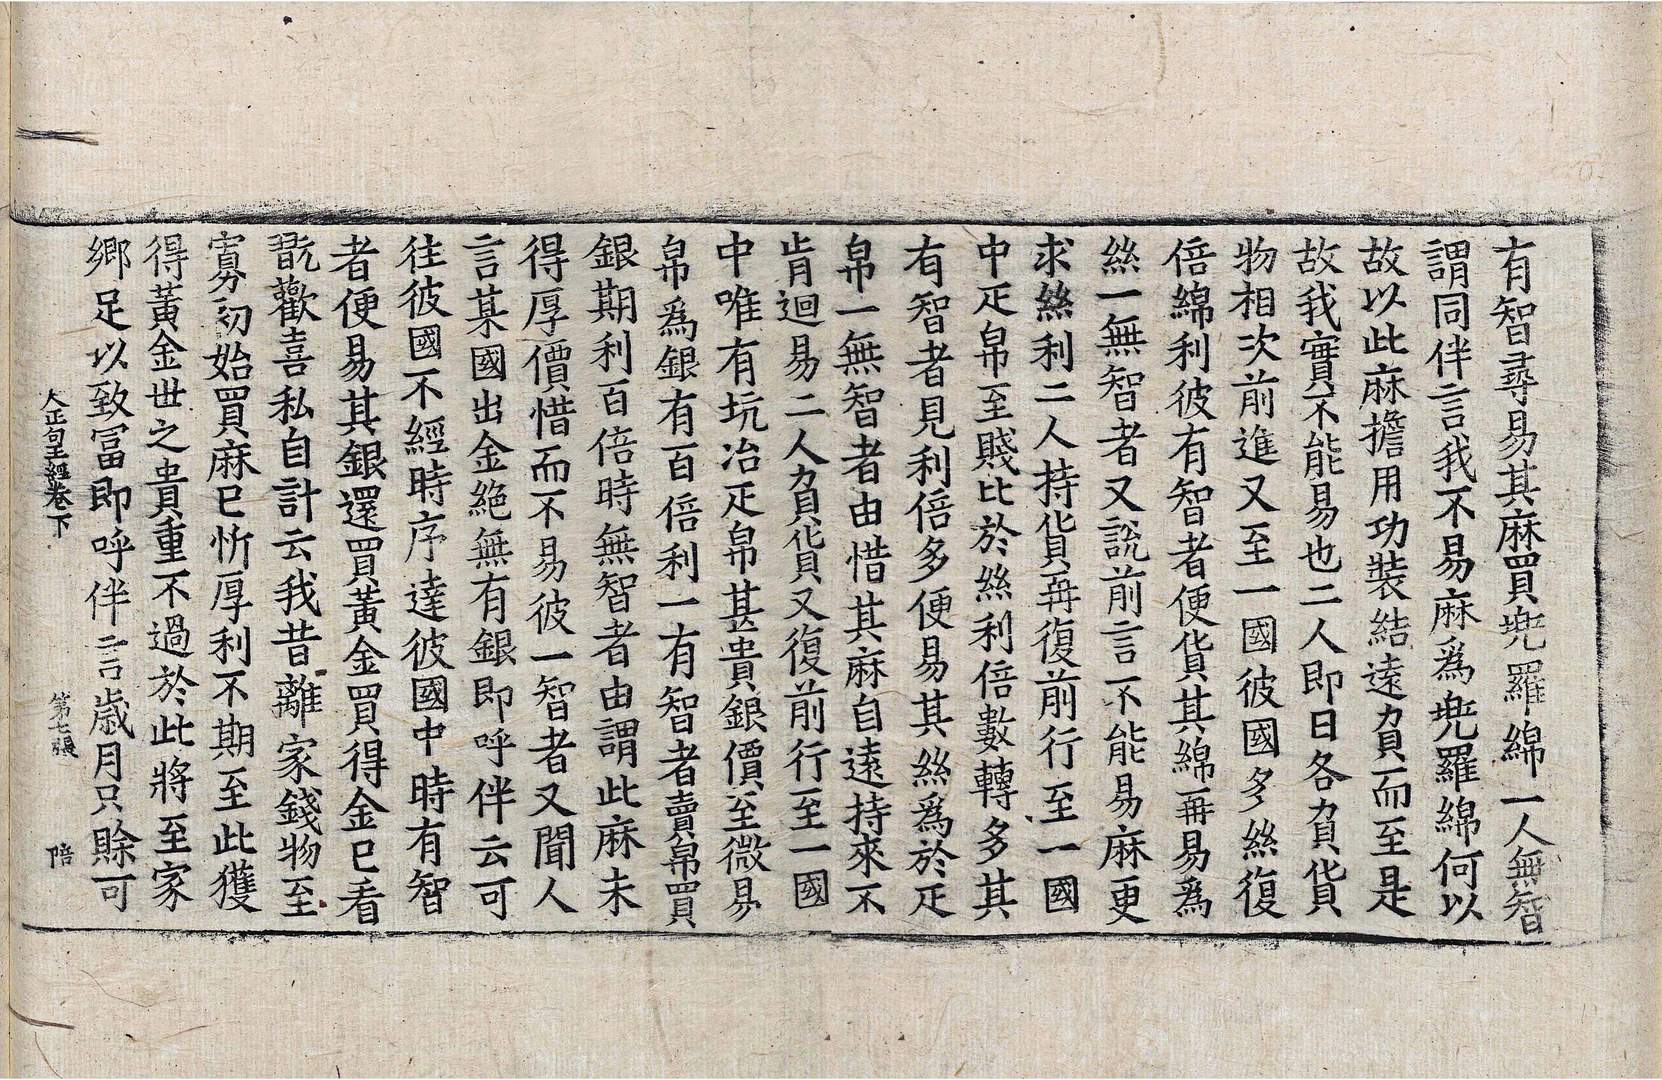 有智尋易其麻買兠羅綿一人無智
謂同伴言我不易麻爲兠羅綿何以
故以此麻擔用功裝結遠負而至是
故我實不能易也二人即日各負貨
物相次前進又至一國彼國多絲復
倍綿利彼有智者便貨其綿再易爲
絲一無智者又說前言不能易麻更
求絲利二人持貨再復前行至一國
中疋帛至賤比於絲利倍數轉多其
有智者見利倍多便易其絲爲於疋
帛一無智者由惜其麻自遠持來不
肯迴易二人負貨又復前行至一國
中唯有坑冶疋帛甚貴銀價至微易
帛爲銀有百倍利一有智者賣帛買
銀期利百倍時無智者由謂此麻未
得厚價惜而不易彼一智者又聞人
言某國出金絶無有銀即呼伴云可
往彼國不經時序達彼國中時有智
者便易其銀還買黃金買得金已看
翫歡喜私自計云我昔離家錢物至
寡初始買麻已忻厚利不期至此獲
得黃金世之貴重不過於此將至家
鄉足以致冨即呼伴言歲月只賒可
大正句王經卷下 第七張 陪